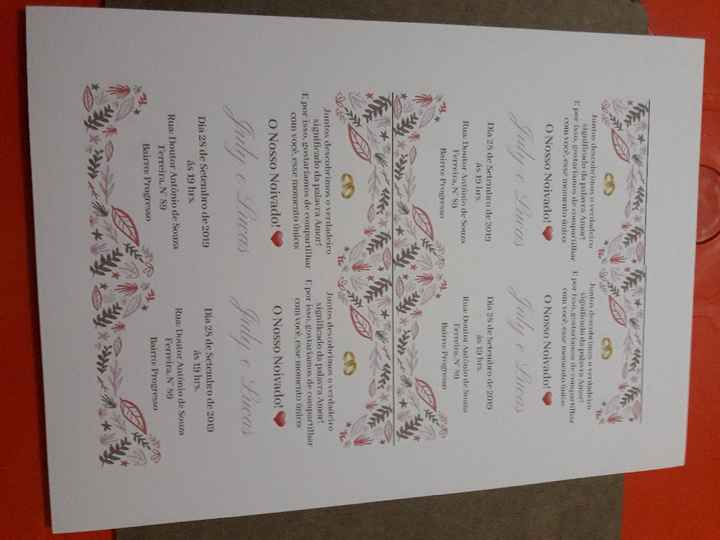 Juntos descobrimos o verdadeiro
significado da palavra Amor!
E por isso, gostaríamos de compartilhar
com você, esse momento único
O Nosso Noivado!
July e Lucas
Dia 28 de Setembro de 2019
ás 19 hrs.
Rua: Doutor Antônio de Souza
Ferreira, N° 89
Bairro Progresso
Juntos descobrimos o verdadeiro
significado da palavra Amor!
E por isso, gostaríamos de compartilhar
com você, esse momento único
O Nosso Noivado!
July e Lucas
Dia 28 de Setembro de 2019
ás 19 hrs.
Rua: Doutor Antônio de Souza
Ferreira, N° 89
Bairro Progresso
Juntos descobrimos o verdadeiro
significado da palavra Amor!
E por isso, gostaríamos de compartilhar
com você, esse momento único
O Nosso Noivado!
July e Lucas
Dia 28 de Setembro de 2019
ás 19 hrs.
Rua: Doutor Antônio de Souza
Ferreira, N° 89
Bairro Progresso
Juntos descobrimos o verdadeiro
significado da palavra Amor!
E por isso, gostaríamos de compartilhar
com você, esse momento único
O Nosso Noivado!
July e Lucas
Dia 28 de Setembro de 2019
ás 19 hrs.
Rua: Doutor Antônio de Souza
Ferreira, N° 89
Bairro Progresso